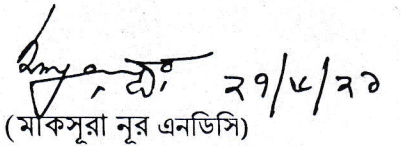 ২৭/৮/২১
(মাকসূরা নূর এনডিসি)